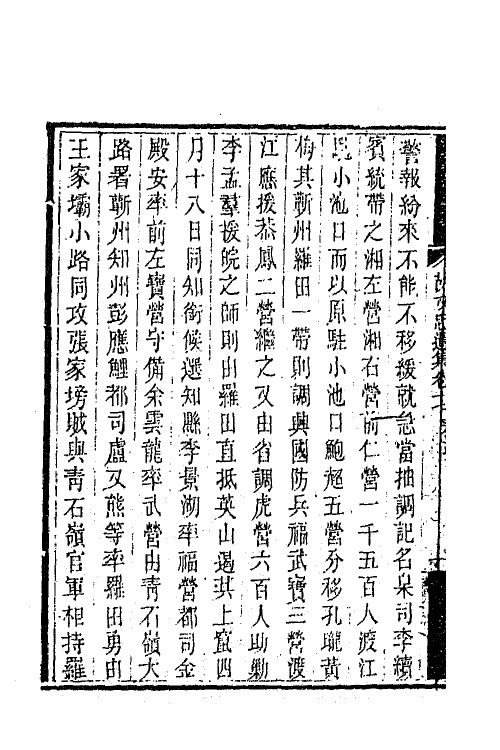 警報紛來不能不移緩就急當抽調記名臬司李續
賓統帶之湘左營湘右營前仁營一千五百人渡江
小池口而以原駐小池口鮑超五營分移孔壠黃
梅其蘄州羅田一帶則調興國防兵福武寶三營渡
江應援恭鳳二營繼之又由省調虎營六百人助勦
李孟羣援皖之師則由羅田直抵英山遏其上竄四
月十八日同知銜候選知縣李景湖率福營都司金
殿安率前左寶營守備余雲龍率武營由青石嶺大
路署蘄州知州彭應鯉都司盧又熊等率羅田勇由
王家壩小路同攻張家塝賊與青石嶺官軍相持羅